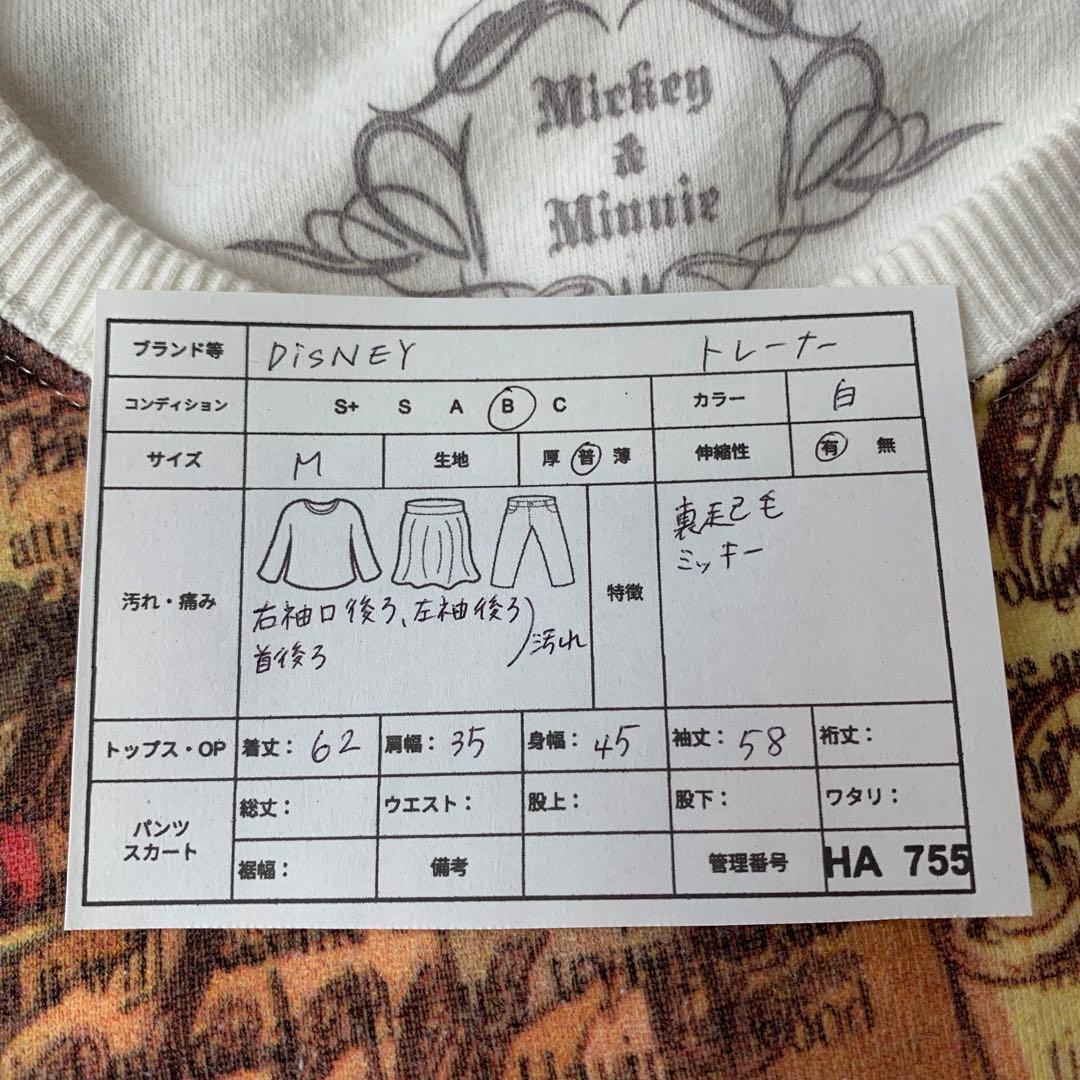 Mickey
&
Minnie
ブランド等 DiSNEY トレーナー
コンディション S+ S A B C カラー 白
サイズ M 生地 厚 普 薄 伸縮性 有 無
汚れ・痛み
右袖口後ろ、左袖後ろ
首後ろ
汚れ
特徴
裏起毛
ミッキー
トップス・OP 着丈: 62 肩幅: 35 身幅: 45 袖丈: 58 裄丈:
パンツ
スカート
総丈: ウエスト: 股上: 股下: ワタリ:
裾幅: 備考 管理番号 HA 755